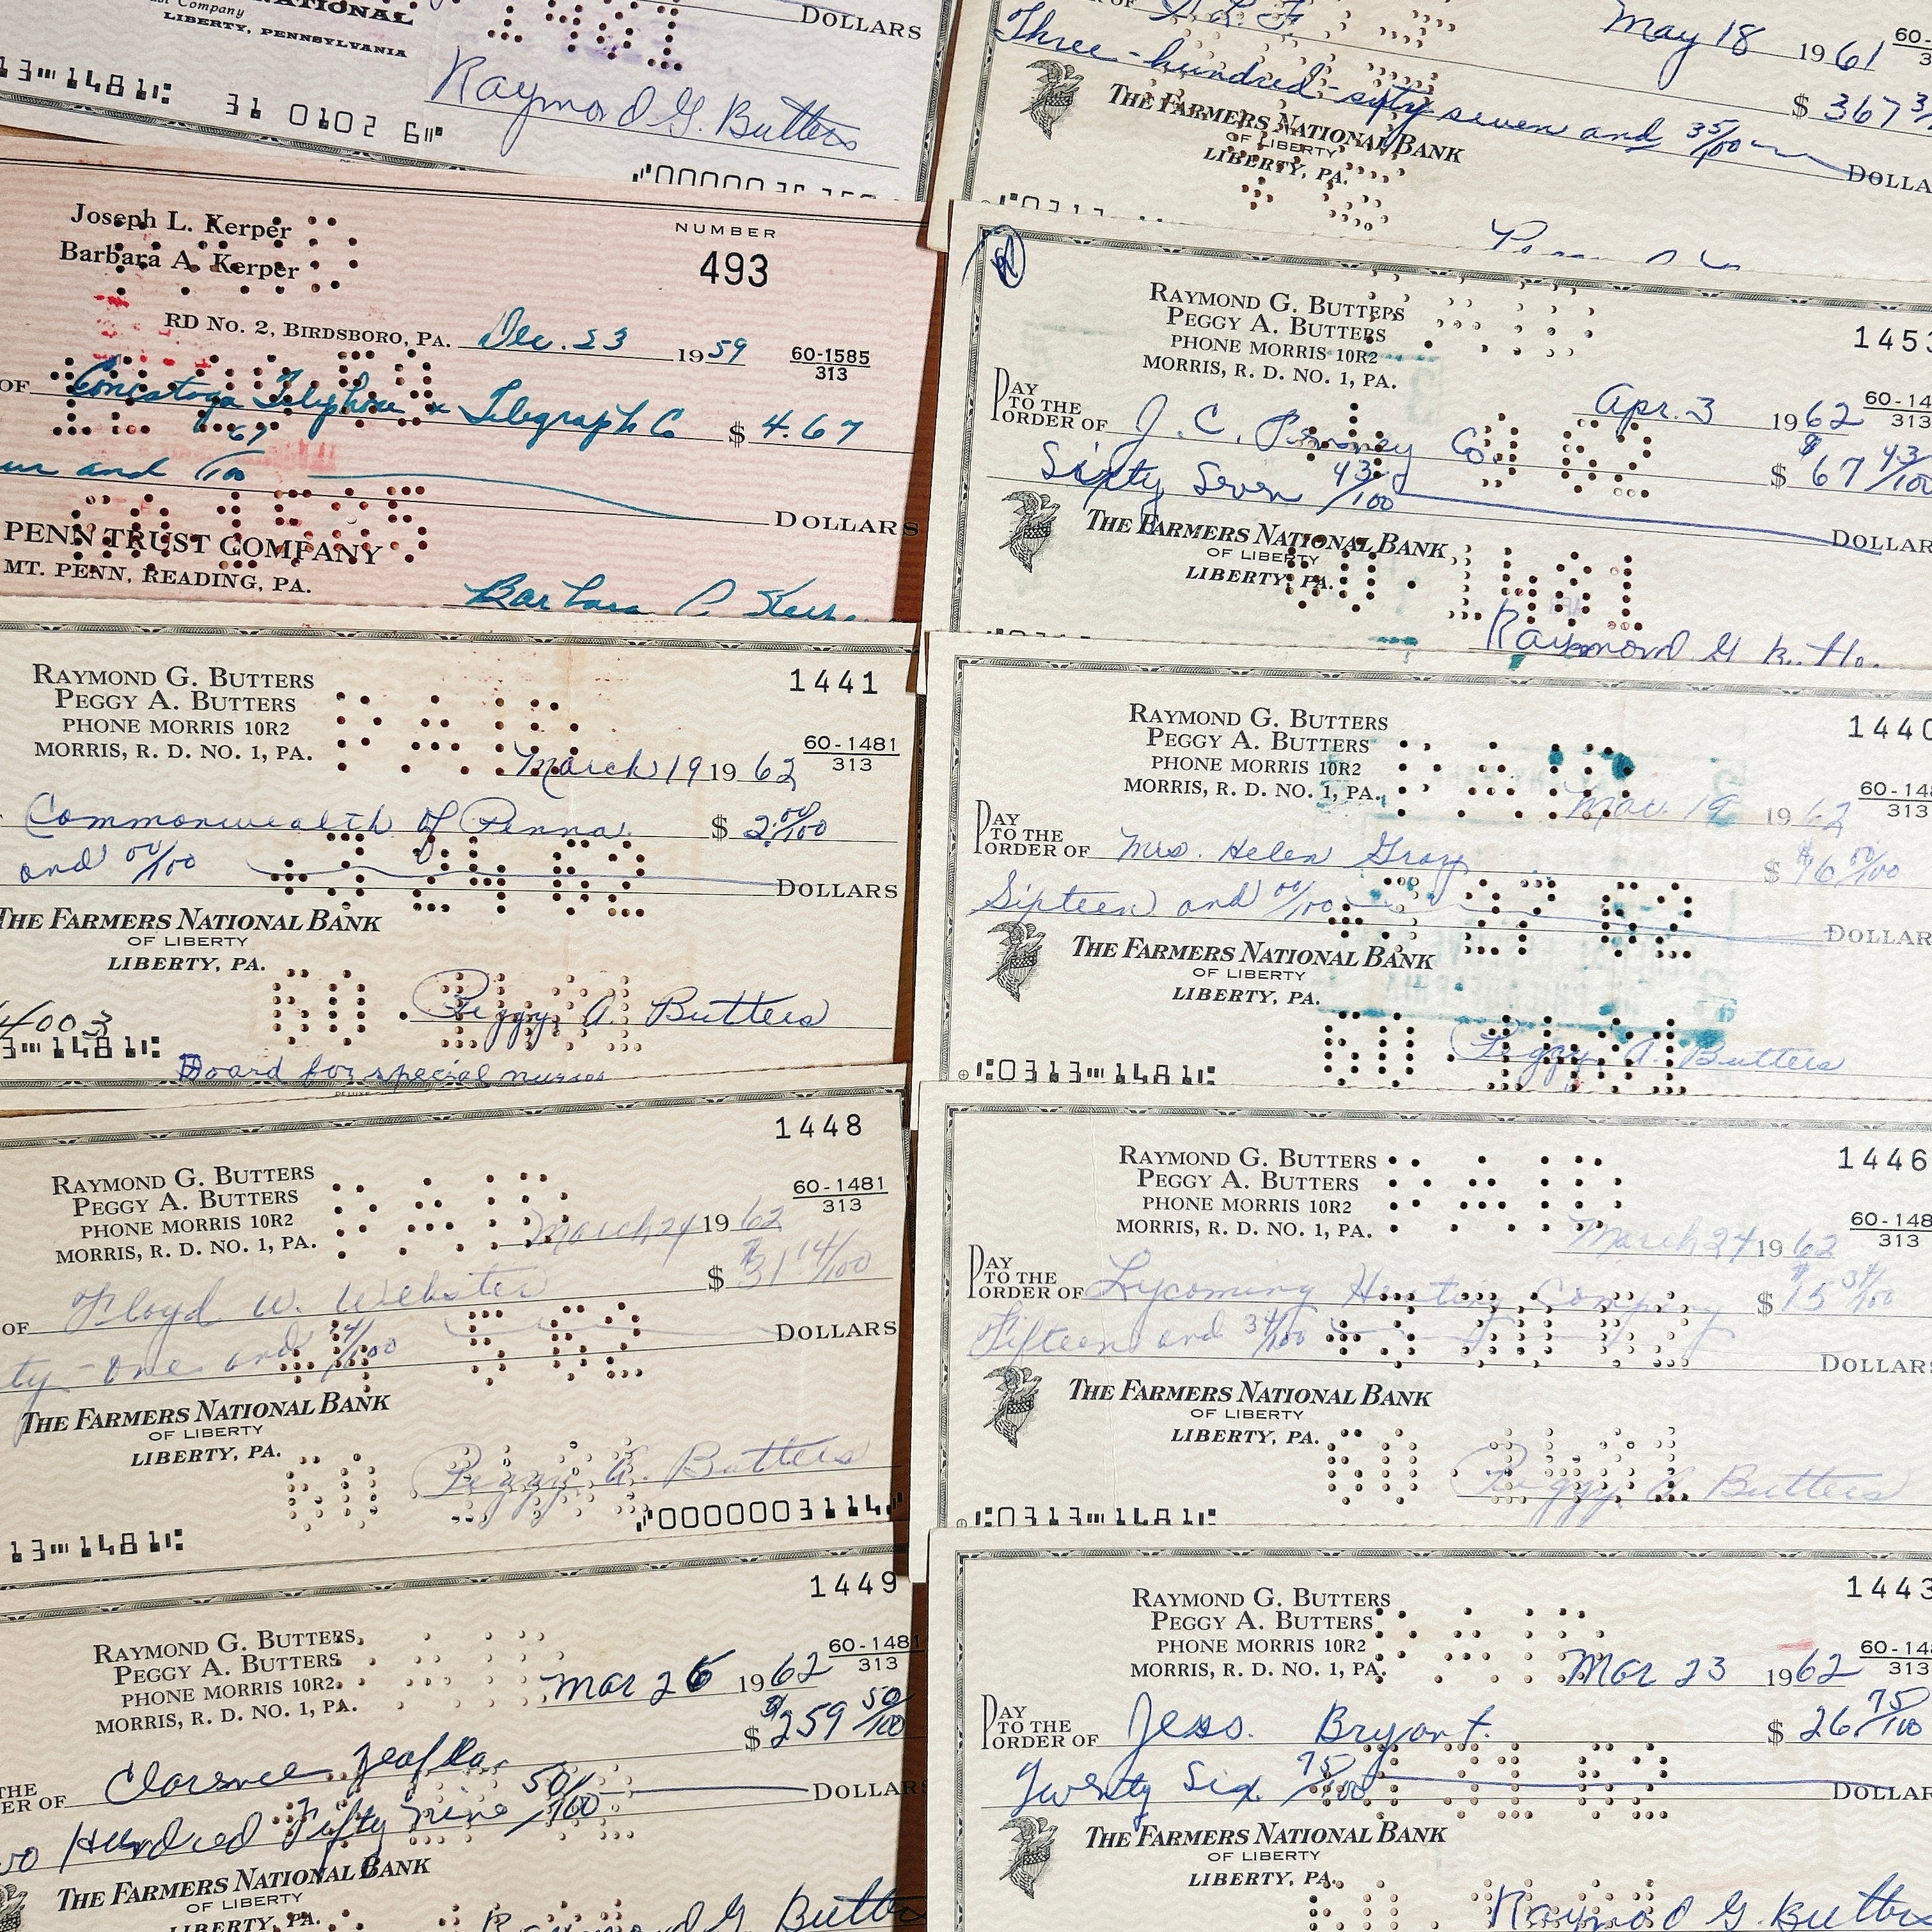 NATIONAL
Company
LIBERTY, PENNSYLVANIA
DOLLARS
13⑈1481⑆ 31 0102 6⑈
Raymond G. Butters
Joseph L. Kerper
Barbara A. Kerper
NUMBER
493
RD No. 2, BIRDSBORO, PA. Dec. 23 1959 60-1585
313
OF Conestoga Telephone & Telegraph Co $ 4.67
and 67/100
DOLLARS
PENN TRUST COMPANY
MT. PENN, READING, PA.
RAYMOND G. BUTTERS
PEGGY A. BUTTERS
PHONE MORRIS 10R2
MORRIS, R. D. NO. 1, PA.
1441
PAID
March 19 1962 60-1481
313
Commonwealth of Penna. $ 2.00/100
and 00/100 DOLLARS
THE FARMERS NATIONAL BANK
OF LIBERTY
LIBERTY, PA.
Peggy A. Butters
4003
3⑈1481⑆
Board for special nurses
1448
RAYMOND G. BUTTERS
PEGGY A. BUTTERS
PHONE MORRIS 10R2
MORRIS, R. D. NO. 1, PA.
PAID
60-1481
313
March 24 1962
OF Floyd W. Webster $ 31 14/100
ty-One and 14/100 DOLLARS
THE FARMERS NATIONAL BANK
OF LIBERTY
LIBERTY, PA.
Peggy A. Butters
13⑈1481⑆ ⑇0000003114⑇
1449
RAYMOND G. BUTTERS
PEGGY A. BUTTERS
PHONE MORRIS 10R2
MORRIS, R. D. NO. 1, PA.
60-1481
313
Mar 26 1962
$ 259 50/100
THE
ER OF Clarence
Hundred Fifty nine 50/100 DOLLARS
THE FARMERS NATIONAL BANK
OF LIBERTY
LIBERTY, PA.
Raymond G. Butters
May 18 1961 60-
Three-hundred-sixty seven and 35/100 $ 367
DOLLA
THE FARMERS NATIONAL BANK
OF LIBERTY
LIBERTY, PA.
RAYMOND G. BUTTERS
PEGGY A. BUTTERS
PHONE MORRIS 10R2
MORRIS, R. D. NO. 1, PA.
145
Apr. 3 1962 60-14
313
PAY
TO THE
ORDER OF J. C. Penney Co. $ 67 43/100
Sixty Seven 43/100 DOLLAR
THE FARMERS NATIONAL BANK
OF LIBERTY
LIBERTY, PA.
Raymond G
RAYMOND G. BUTTERS
PEGGY A. BUTTERS
PHONE MORRIS 10R2
MORRIS, R. D. NO. 1, PA.
1440
PAID
Mar. 19 1962 60-148
313
PAY
TO THE
ORDER OF Mrs. Helen Gray $ 16 00/100
Sixteen and 00/100 DOLLAR
THE FARMERS NATIONAL BANK
OF LIBERTY
LIBERTY, PA.
Peggy A. Butters
⑆0313⑈1481⑆
RAYMOND G. BUTTERS
PEGGY A. BUTTERS
PHONE MORRIS 10R2
MORRIS, R. D. NO. 1, PA.
1446
PAID
March 24 1962 60-148
313
PAY
TO THE
ORDER OF Lycoming Heating Company $ 15 34/100
Fifteen and 34/100 DOLLARS
THE FARMERS NATIONAL BANK
OF LIBERTY
LIBERTY, PA.
Peggy A. Butters
⑆0313⑈1481⑆
RAYMOND G. BUTTERS
PEGGY A. BUTTERS
PHONE MORRIS 10R2
MORRIS, R. D. NO. 1, PA.
1443
PAID
Mar 23 1962 60-148
313
PAY
TO THE
ORDER OF Jess. Bryant. $ 26 75/100
Twenty Six 75/100 DOLLAR
THE FARMERS NATIONAL BANK
OF LIBERTY
LIBERTY, PA.
Raymond G. Butters